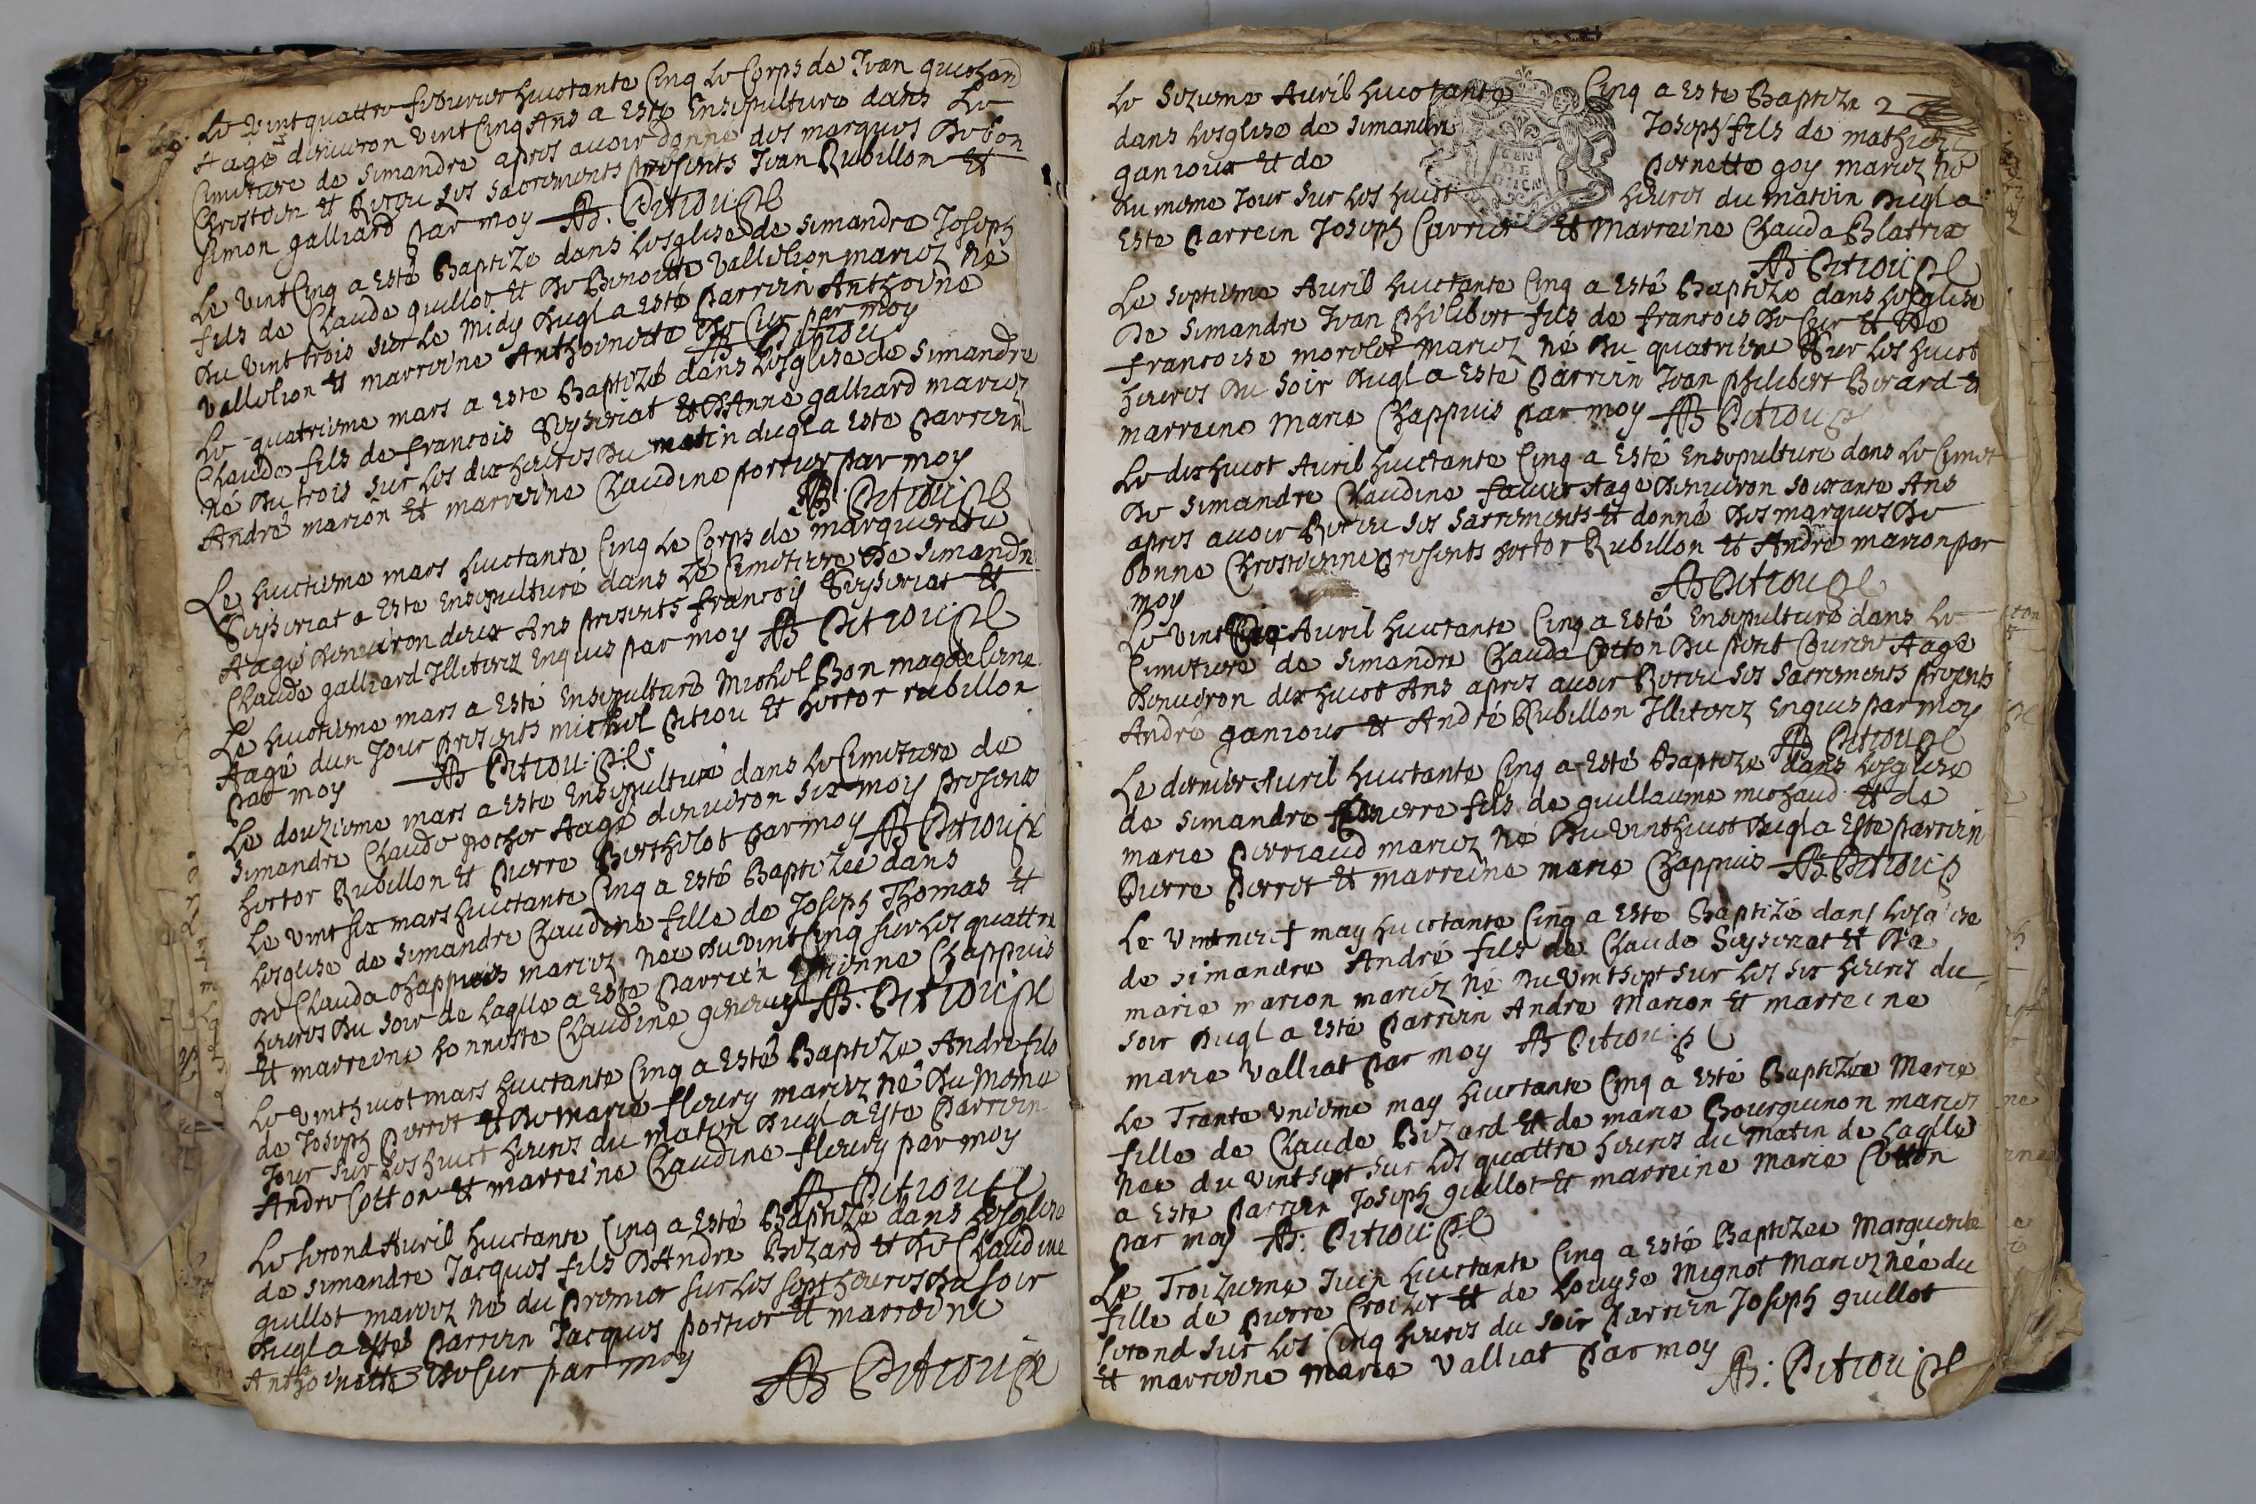 Le vintquattre febvrier huictante Cinq le Corps de Jean quichard
Aagé denviron vint Cinq Ans a Esté Ensepulture dans Le
Cimetiere de Simandre apres avoir donné des marques De bon
Chrestien et Receu ses sacrements presents Jean Rubillon et
simon galliard par moy AB. Pitiou pbr
Le vint Cinq a Esté Baptize dans Lesglise de simandre Joseph
fils de Claude guillot et De Benoitte vallelion mariez né
du vint trois sur Le Midy Duql a esté parrein Anthoine
vallelion et marreine Anthoinette De Cur par moy
AB Pitiou
Le quatrieme mars a este Baptizé dans Lesglise de Simandre
Claude fils de francois Seyseriat et D'Anne galliard mariez
né Du trois sur Les dix heures Du matin duql a este parrein
André marion et marreine Claudine portier par moy
AB. Pitiou pbr
Le huictieme mars huictante Cinq Le Corps de marguerite
Seyseriat a Este Ensepulturé dans Le Cimetiere De Simandre
Aagé Denviron deux Ans presents francoy Seyseriat et
Claude galliard Illiterez Enquis par moy AB Pitiou pbr
Le huictieme mars a Esté Ensepulturé Michel Bon magdeleine
Aagé dun Jour presents michel Pitiou et hector rubillon
par moy AB Pitiou pbr
Le douzieme mars a Este Ensepulturé dans Le Cimetiere de
Simandre Claude pocher Aagé denviron six moys presents
hector Rubillon et pierre Berthelot par moy AB Pitiou pbr
Le vint six mars huictante Cinq a Esté Baptizée dans
Lesglise de simandre Claudine fille de Joseph Thomas et
De Clauda Chappuis mariez née Du vint Cinq sur Les quattre
heures Du soir de Laqlle a Este parrein Estienne Chappuis
et marreine honneste Claudine AB. Pitiou pbr
Le vinthuict mars huictante Cinq a Esté Baptize André fils
de Joseph perrot et De marie fleury mariez né Du Mesme
Jour sur Les huict heures du matin Duql a Este parrein
André Cotton et marreine Claudine fleury par moy
AB Pitiou pbr
Le second Avril huictante Cinq a Esté Baptizé dans Lesglise
de simandre Jacques fils D'André Bizard et De Claudine
guillot mariez né du premier sur Les sept heures Du soir
Duql a esté parrein Jacques portier et marreine
Anthoinette De Cur par moy AB Pitiou pbr
2
Le Sizieme Avril huictante Cinq a Esté Baptize
dans Lesglise de simandre Joseph fils de mathieu
ganioux et de pernette goy mariez né
Du mesme Jour sur Les huict heures du matin Duql a
Este parrein Joseph Carrier et Marreine Clauda Blatrix
AB Pitiou pbr
Le septieme Avril huictante Cinq a Esté Baptizé dans Lesglise
De Simandre Jean philibert fils de francois De Cur et De
francoise morelot mariez né Du quatrieme sur Les huict
heures Du soir Duql a Este parrein Jean philibert Berard et
marreine Marie Chappuis par moy AB Pitiou pbr
Le dixhuict Avril huictante Cinq a Esté Ensepulture dans Le Cimet
De Simandre Claudine favier Aagé Denviron soixante Ans
apres avoir Receu ses sacrements et donné Des marques De
bonne Chrestienne presents hector Rubillon et André marion par
moy AB Pitiou pbr
Le vint Cinq Avril huictante Cinq a Esté Ensepulturé dans Le
Cimetiere de Simandre Clauda Cotton Du petit Courin Aagé
Denviron dixhuict Ans apres avoir Receu ses sacrements presents
André ganioux et André Rubillon Illiterez Enquis par moy
AB Pitiou pbr
Le dernier Avril huictante Cinq a Esté Baptizé dans Lesglise
de Simandre pierre fils de guillaume michaud et de
marie perriaud mariez né Du vinthuict Duql a Este parrein
Pierre Perrot et marreine marie Chappuis AB Pitiou pbr
Le vintneuf may huictante Cinq a Este Baptizé dans Lesglise
de simandre André fils de Claude Seyseriat et De
marie marion mariéz né Du vintsept sur Les six heures du
soir Duql a Esté parrein André Marion et marreine
marie valliat par moy AB Pitiou pbr
Le Trante unieme may huictante Cinq a Esté Baptizée Marie
fille de Claude Bizard et de marie Bourguinon mariez
née du vintsept sur Les quattre heures du matin de Laqlle
a Esté parrein Joseph guillot et marreine Marie Cotton
par moy AB: Pitiou pbr
Le Troizieme Juin huictante Cinq a Esté Baptizée Marguerite
fille de pierre Croizer et de Louyse Mignot Mariez née du
second sur Les Cinq heures du soir parrein Joseph guillot
et marreine Marie valliat par moy AB: Pitiou pbr